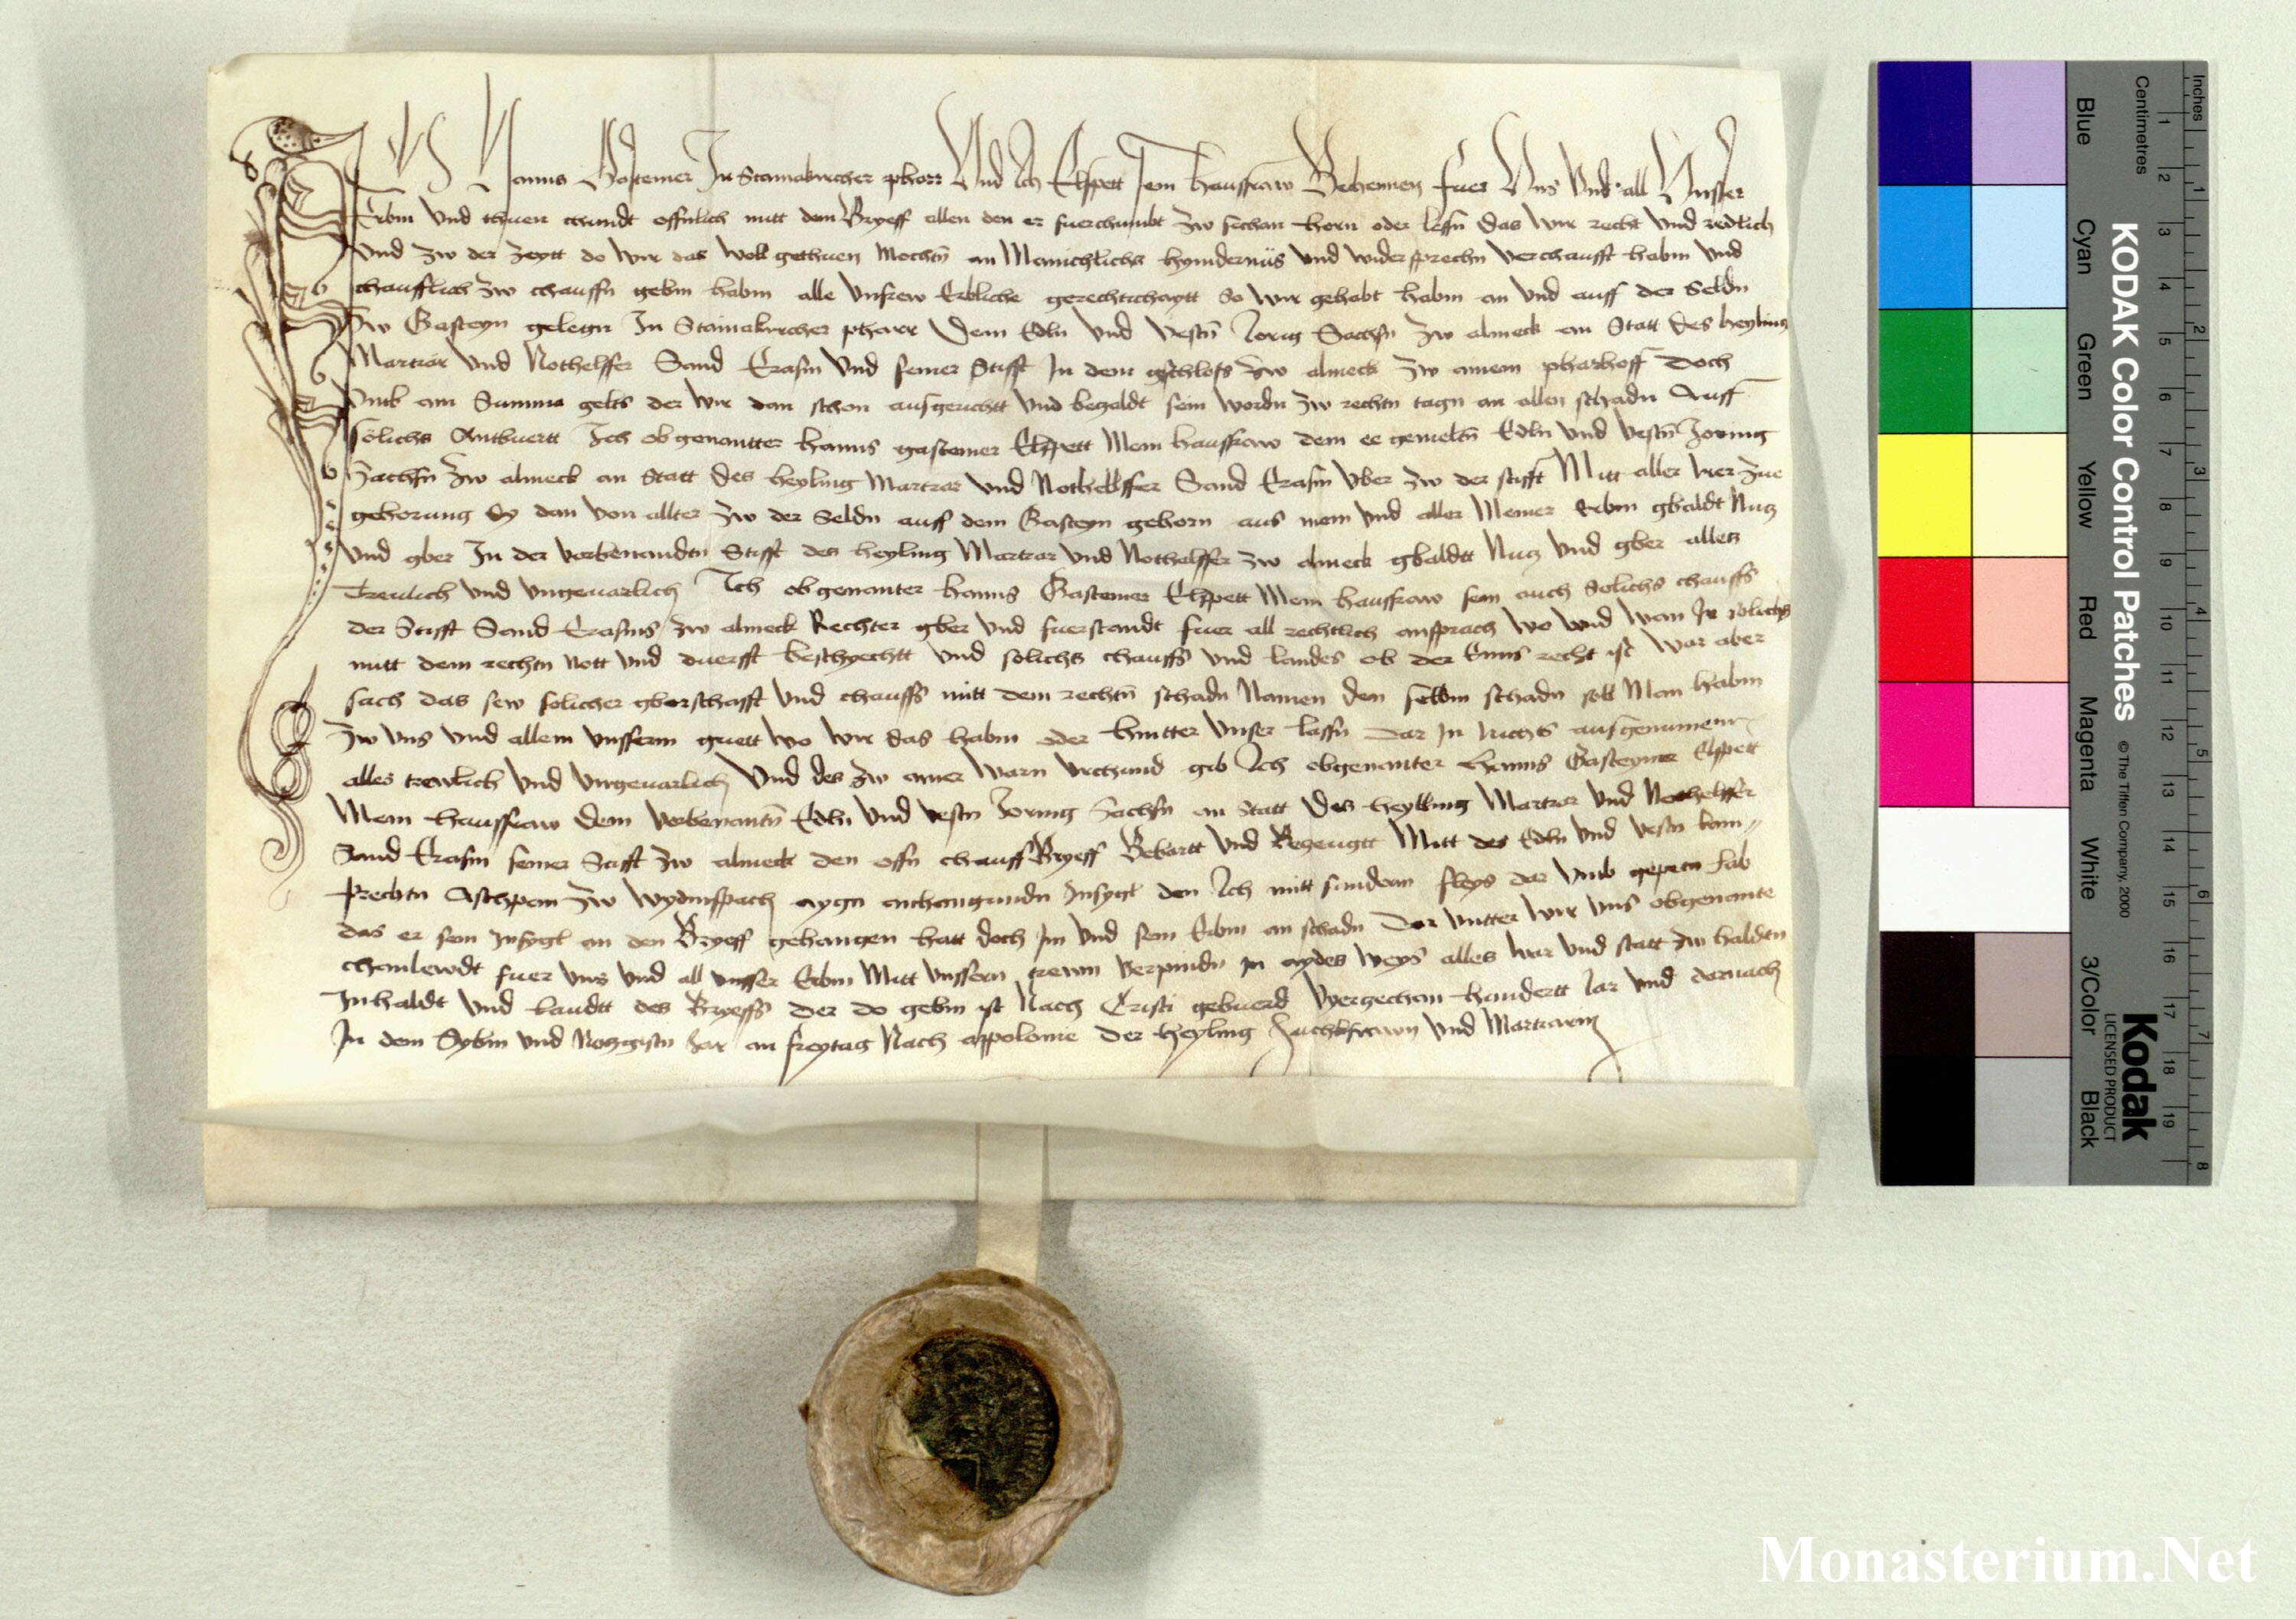 Ich Hanns Gastemer In Stainakircher pharr Und Ich Elspett sein hausfraw Bechennen fuer Uns Und all Unsser
Erbm Und thuen chundt offnlich mitt dem Bryeff allen den er fuerchumbt zw sechan horn oder lesn das wir recht Und redlich
Und zw der zeytt do wir das woll gethuen Mochtn an Manichlichs hyndernüs Und widersprechn verchaufft habm Und
chaufflich zw chauffn gebm habm alle Unsrew Erbliche gerechtichaytt so wir gehabt habm an Und auff der Seldn
Zw Gasteyn gelegn In Stainakircher pharr Dem Edln Und Vestn Jorig Sachsn zw almeck an Statt des heyling
Martrar Und Nothelffer Sand Erasm Und seiner Stifft In dem gschloss zw almeck zw ainem pharhoff Doch
Umb ain Summa gelts der wir dan schon ausgerichtt Und bezaldt sein wordn zw rechtn tagn an allen schadn Auff
solichs Antbuertt Ich obgenantter hanns gastemer Elspett Mein hausfraw dem ee gemeltn Edln Und Vestn Joring
Sachsn zw almeck an Statt des heyling Martrar Und Nothellffer Sand Erasm Uber zw der stifft Mitt aller hier zue
gehorung dy dan von allter zw der Seldn auff dem Gasteyn gehorn aus mein Und aller Meiner Erbm gbaldt Nutz
Und gber In der vorbenandtn Stifft des heyling Martrar Und Nothelffer zw almeck gbaldtt Nutz Und gber alles
Treulich Und Ungeuarlich Ich obgenanter hanns Gastemer Elspett Mein hausfraw sein auch solichs chauffs
der Stifft Sand Erasms zw almeck Rechter gber Und fuerstandt fuer all rechtlich ansprach wo Und wan In solichs
mitt dem rechtn Nott Und duerfft beschyechtt Und solichs chauffs Und landes ob der Enns recht ist War aber
sach das sew solicher gberschafft Und chauffs mitt dem rechtn schadn Namen den selbm schadn soll Man habm
Zw Uns Und allem Unsserm guett wo wir das habm oder hintter Unser lassn dar In nichts ausgenumen
alles trewlich Und Ungeuarlich Und des zw ainer warn Urchund gib Ich obgenanter hanns Gasteymer Elspett
Mein hausfraw dem vorbenantn Edln Und vestn Joring Sachsn an Statt des heylling Martrar Und Nothelffer
Sand Erasm seiner Stifft zw almeck den offn chauff Bryeff Bebartt Und Bezeugtt Mitt des Edln Und vestn lam
prechtn Aschpan zw wydmspach aygn anhangundn Insygl den Ich mitt sundern fleys dar Umb gepetn hab
das er sein Insygl an den Bryeff gehangen hatt doch Im Und sein Erbm an schadn Dar Untter wir Uns obgenante
chanlewdt fuer Uns Und all Unsser Erbm Mitt Unssern trewn verpindn in aydes weys alles war Und statt zw haldtn
Inhaldt Und laudtt des Bryeffs Der do gebm ist Nach Cristi gebuerd Vyerzechan hundertt Iar Und darnach
In dem Sybm Und Notzgistn Iar an freytag Nach appolonie Der heyling Juchkfrawn Und Martrarin
KODAK Color Control Patches © The Tiffen Company, 2000
Kodak
LICENSED PRODUCT
Inches
Centimetres
1 2 3 4 5 6 7 8
1 2 3 4 5 6 7 8 9 10 11 12 13 14 15 16 17 18 19
Blue Cyan Green Yellow Red Magenta White 3/Color Black
Monasterium.Net